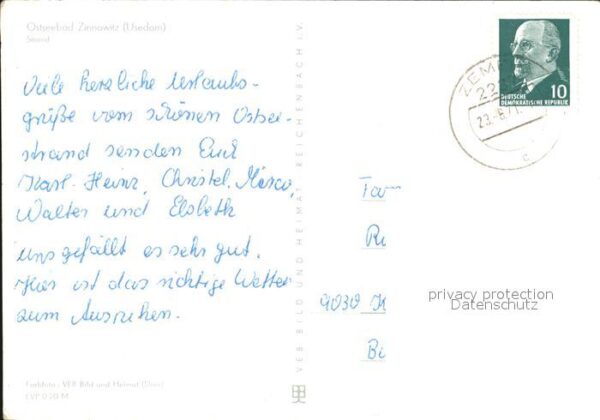 Ostseebad Zinnowitz (Usedom)
Strand
Viele herzliche Urlaubs-
grüße vom schönen Ostsee-
strand senden Euch
Karl-Heinz, Christel, Marco,
Walter und Elsbeth
Uns gefällt es sehr gut.
Hier ist das richtige Wetter
zum Ausruhen.
Farbfoto: VEB Bild und Heimat
EVP 0.20 M
VEB BILD UND HEIMAT REICHENBACH I. V.
10
DEUTSCHE
DEMOKRATISCHE REPUBLIK
ZEMP
22
23.-8.71
c
Ta
Ri
9030 K
Bi
privacy protection
Datenschutz